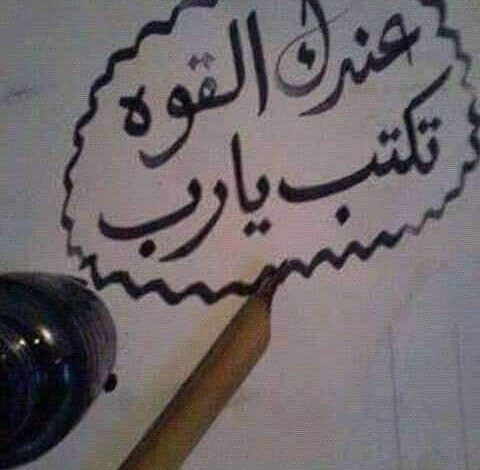 عندك القوه
تكتب يارب